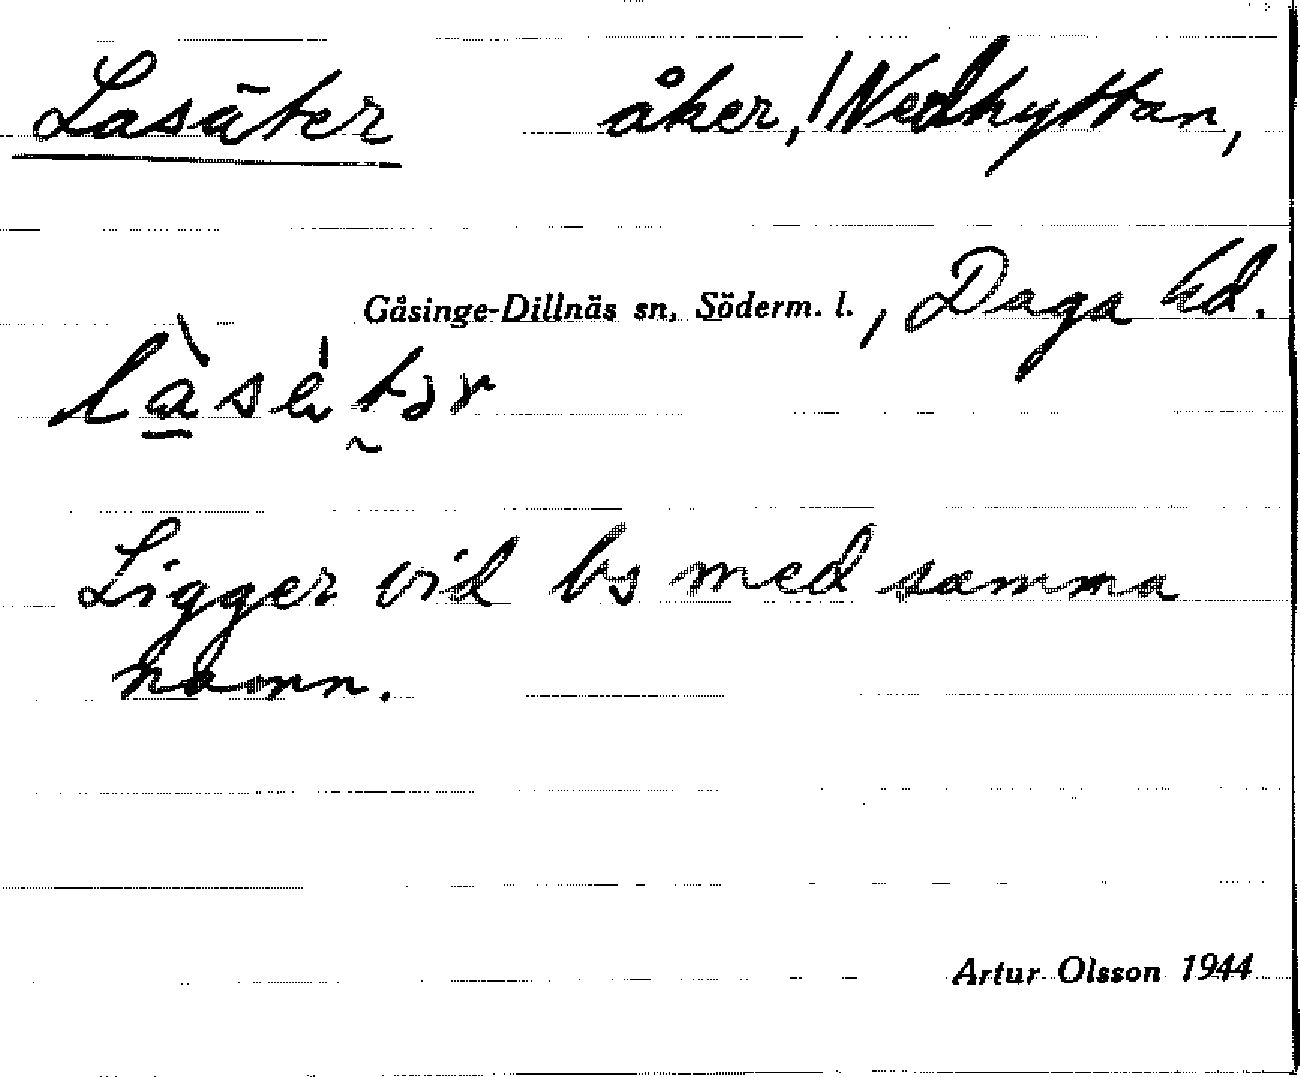 Lasäter åker, / Nedhyttan,
Gåsinge-Dillnäs sn, Söderm. l., Daga hd.
Ligger vid bs med samma
namn.
Artur Olsson 1944